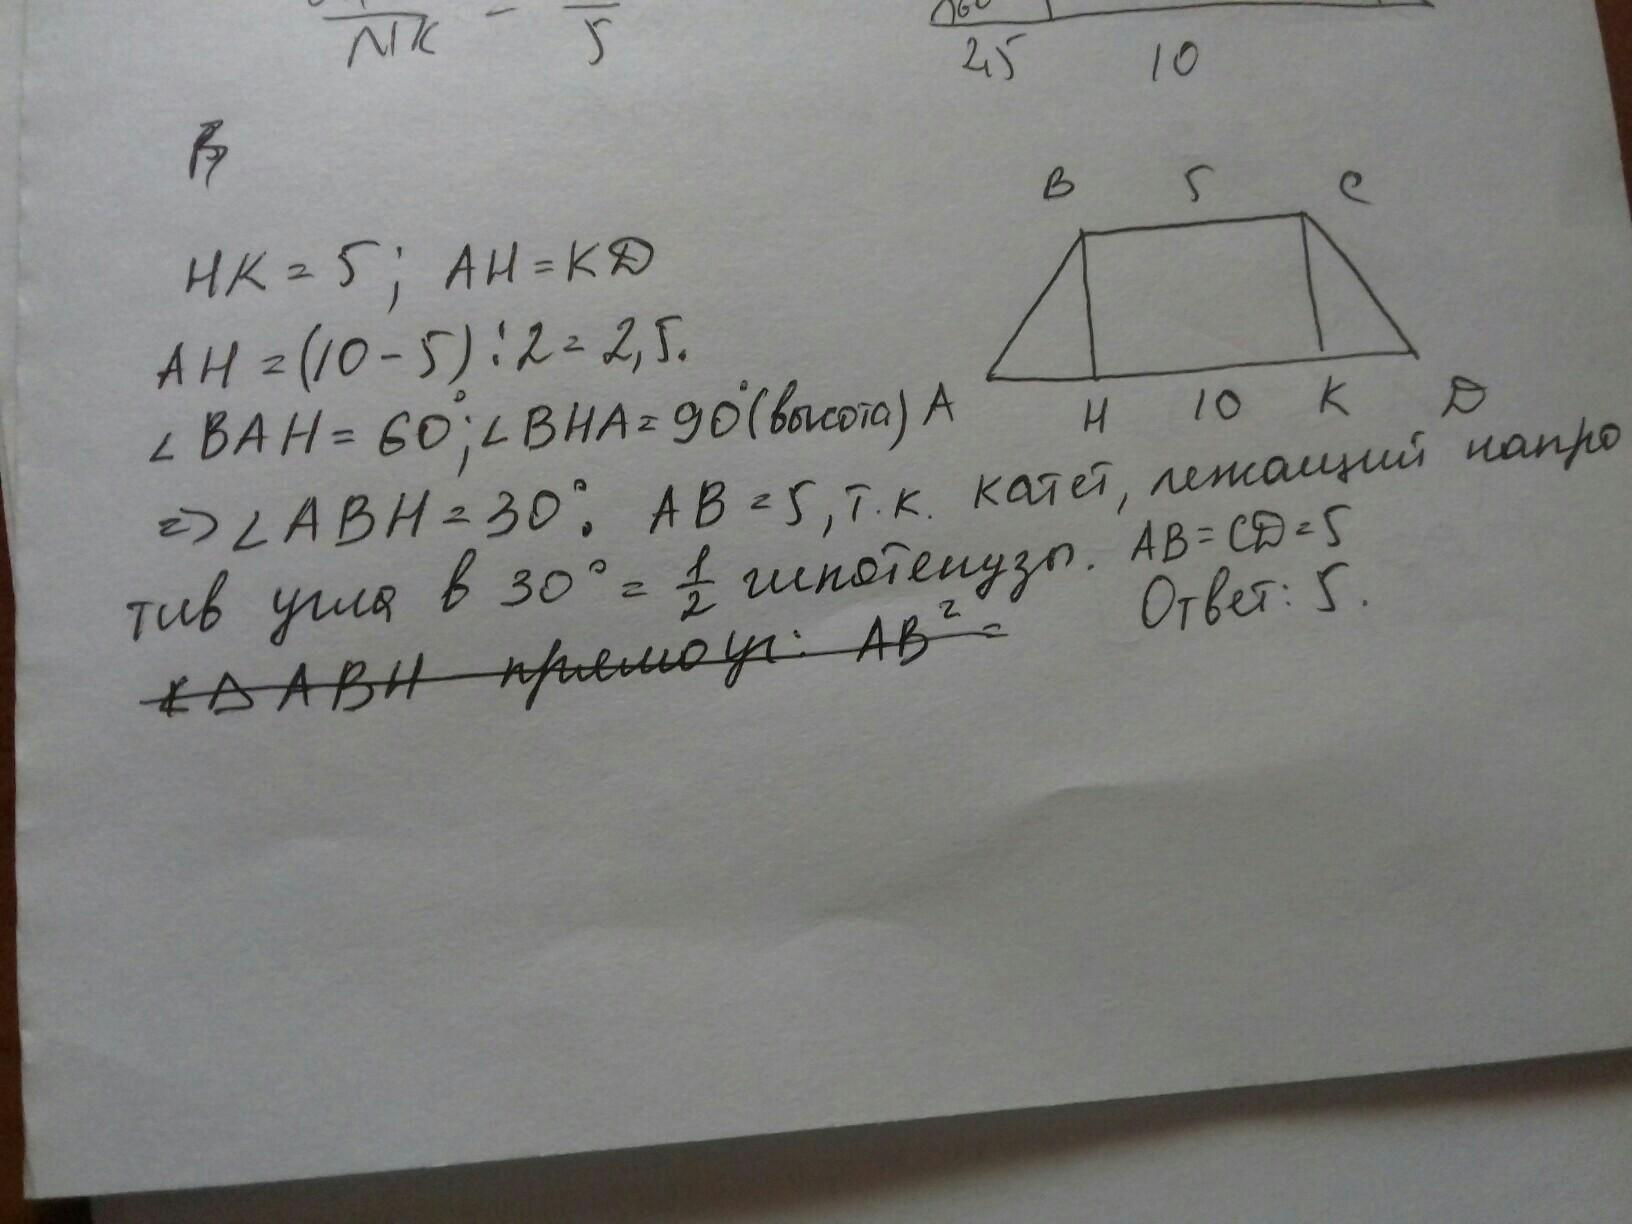 NK = 5
60°
2,5 10
B 5 C
HK = 5; AH = KD
AH = (10 - 5) : 2 = 2,5.
∠BAH = 60°; ∠BHA = 90° (высота)
A H 10 K D
=> ∠ABH = 30°. AB = 5, т.к. катет, лежащий напро
тив угла в 30° = 1/2 гипотенузы. AB = CD = 5
Ответ: 5.
ΔABH прямоуг: AB² =